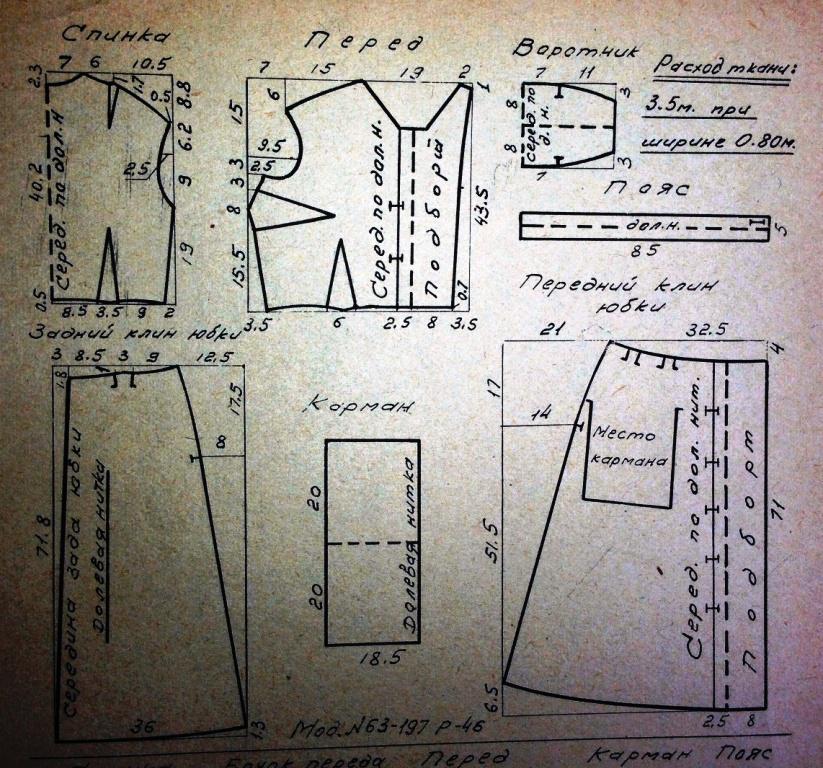 Спинка
7 6 10.5
2.3
1.7
0.5
8.8
6.2
2.5
9
40.2
Серед. по дол. н
19
0.5
8.5 3.5 9 2
Перед
7 15 19 2
1
15
6
9.5
2.5
3 3
8
15.5
Серед. по дол. н.
Подборт
43.5
0.7
3.5 6 2.5 8 3.5
Воротник
7 11
8
8
серед. по
д. н.
3
3
7
Расход ткани:
3.5м. при
ширине 0.80м.
Пояс
дол.н.
5
85
Задний клин юбки
3 8.5 3 9 12.5
1.8
1
17.5
8
71.8
Середина зада юбки
Долевая нитка
36
1.3
Карман
20
20
Долевая нитка
18.5
Передний клин
юбки
21 32.5
4
17
14
Место
кармана
51.5
Серед. по дол. нит.
Подборт
71
6.5
2.5 8
Мод. N63-197 Р-46
переда Перед Карман Пояс